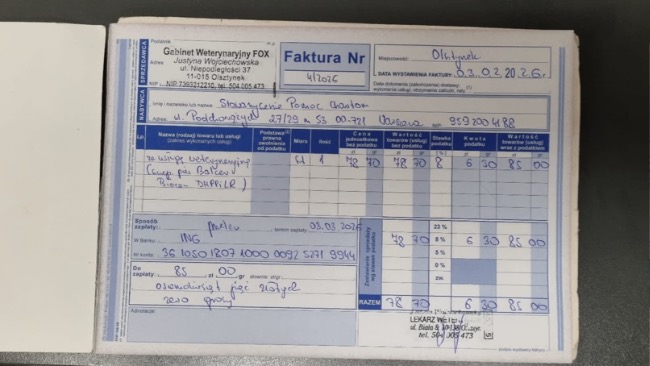 SPRZEDAWCA
Podatnik
Gabinet Weterynaryjny FOX
Justyna Wojciechowska
Adres ul. Niepodległości 37
11-015 Olsztynek
NIP 7393212210, tel. 504 005 473
Faktura Nr
4/2026
Miejscowość: Olsztynek
DATA WYSTAWIENIA FAKTURY: 03.02.2026r.
NABYWCA
Imię i nazwisko lub nazwa Stowarzyszenie Pomoc
Adres ul. 27/29 53 00-721 Warszawa NIP 9592004188
Lp.
Nazwa (rodzaj) towaru lub usługi
(zakres wykonanych usług)
Podstawa prawna zwolnienia od podatku
Miara
Ilość
Cena jednostkowa bez podatku
Wartość towarów (usług) bez podatku
Stawka podatku
Kwota podatku
Wartość towarów (usług) wraz z podatkiem
zł gr
za usługę weterynaryjną 1 78 70 78 70 8 6 30 85 00
DHPPi LR)
Sposób zapłaty: przelew termin zapłaty: 03.03.2026
W banku: ING
Nr konta: 36 1050 1807 1000 0092 5271 9944
Zestawienie sprzedaży wg stawek podatku
23 %
78 70 8 % 6 30 85 00
5 %
0 %
zw.
Do zapłaty: 85 zł 00 gr słownie
osiemdziesiąt pięć złotych
zero groszy
RAZEM 78 70 6 30 85 00
Adnotacje:
LEKARZ WET
tel. 504 005 473